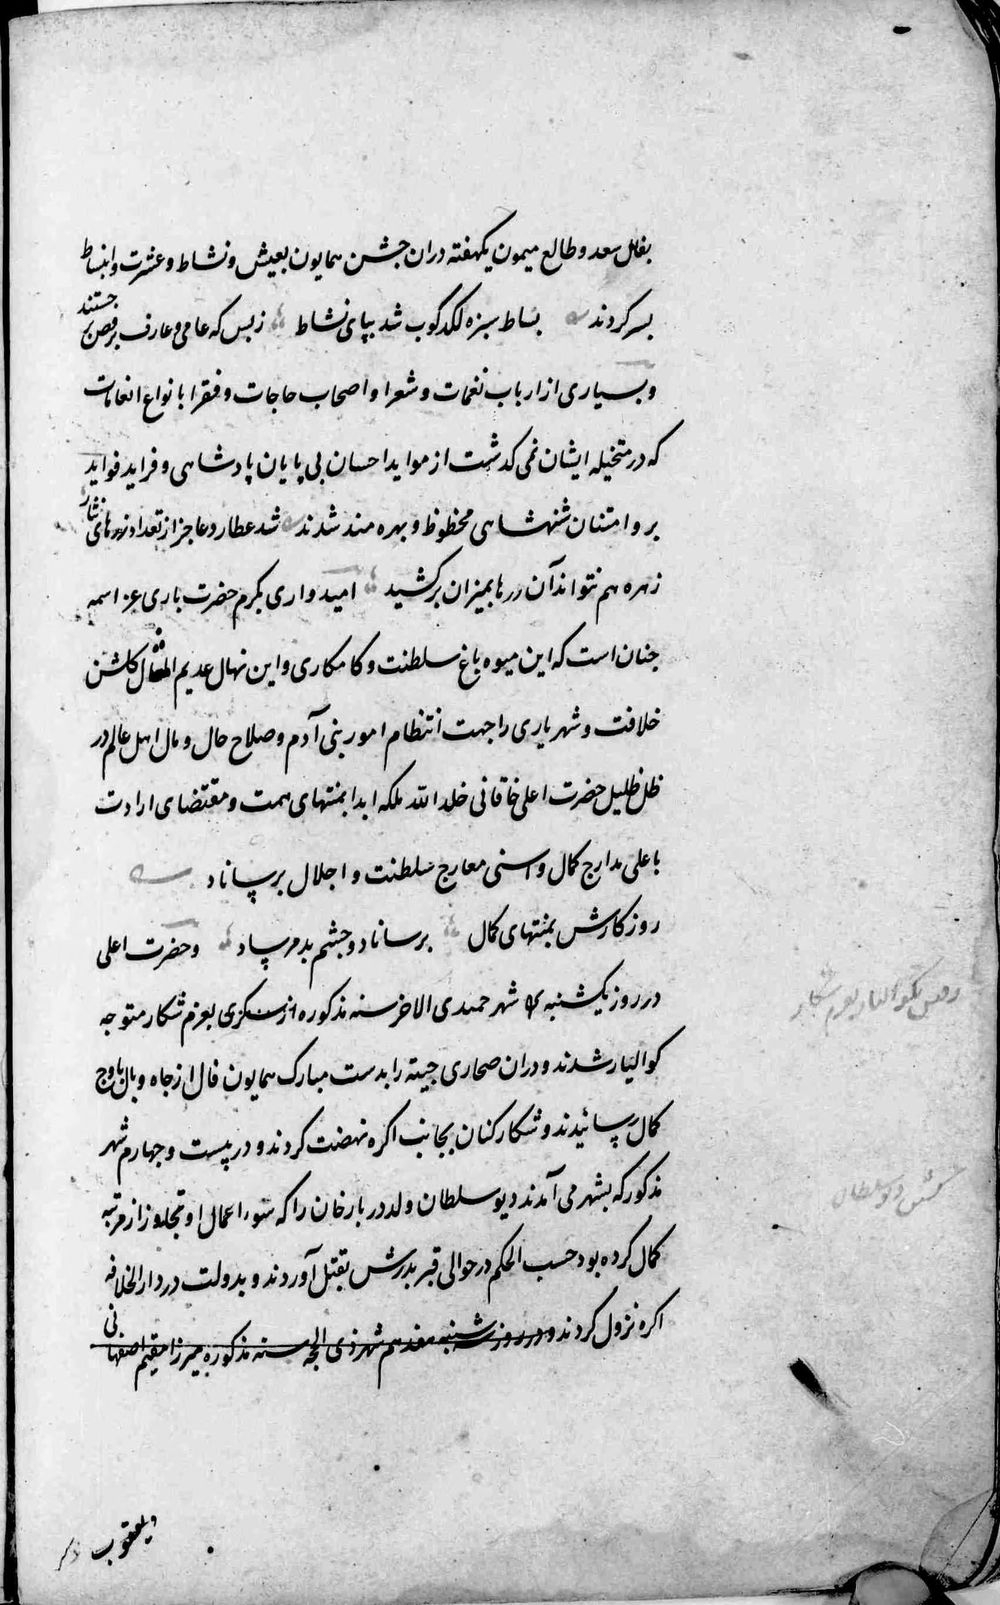 بفال سعد و طالع میمون یکهفته دران جشن همایون بعیش و نشاط و عشرت و انبساط
بسر کردند بساط سبزه لکدکوب شد بپای نشاط زبس که عامی و عارف برقص بر جستند
و بسیاری از ارباب نغمات و شعرا و اصحاب حاجات و فقرا بانواع انعامات
که در متخیله ایشان نمی کذشت از مواید احسان بی پایان پادشاهی و فراید فواید
بر و امتنان شهنشاهی محظوظ و بهره مند شدند شد عطارد عاجز از تعداد زرهای نثار
زهره هم نتواند آن زرها بمیزان برکشید امیدواری بکرم حضرت باری عز اسمه
چنان است که این میوه باغ سلطنت و کامکاری و این نهال عدیم المثال کلشن
خلافت و شهریاری را جهت انتظام امور بنی آدم و صلاح حال و مال اهل عالم در
ظل ظلیل حضرت اعلی خاقانی خلد الله ملکه ابدا بمنتهای همت و مقتضای ارادت
باعلی مدارج کمال و اسنی معارج سلطنت و اجلال برساناد
روزکارش بمنتهای کمال برساناد و چشم بد مرساد و حضرت اعلی
در روز یکشنبه شهر جمیدی الاخر سنه مذکوره از سکری بعزم شکار متوجه
کوالیار شدند و دران صحاری چیته را بدست مبارک همایون فال از جاه و بال باوج
کمال رسانیدند و شکار کنان بجانب اکره نهضت کردند و در بیست و چهارم شهر
مذکور که بشهر می آمدند دیو سلطان ولد دربار خان را که سوء اعمال او تجاوز از مرتبه
کمال کرده بود حسب الحکم در حوالی قبر پدرش بقتل آوردند و بدولت در دار الخلافه
اکره نزول کردند و در روز شنبه هفدهم شهر ذی الحجه سنه مذکوره میرزا مقیم اصفهانی
و یعقوب